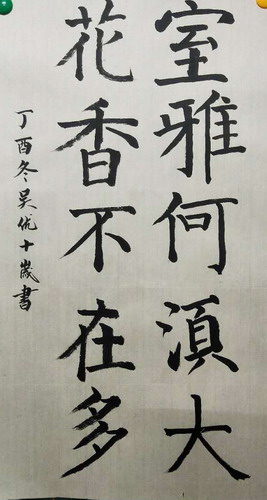 室雅何湏大
花香不在多
丁酉冬吴优十歲書